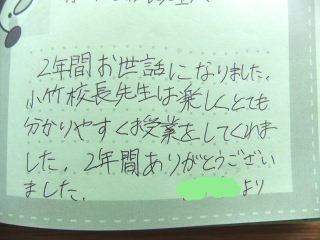 2年間お世話になりました。
小竹校長先生は楽しくとても
分かりやすくお授業をしてくれま
した。2年間ありがとうござい
ました。
より